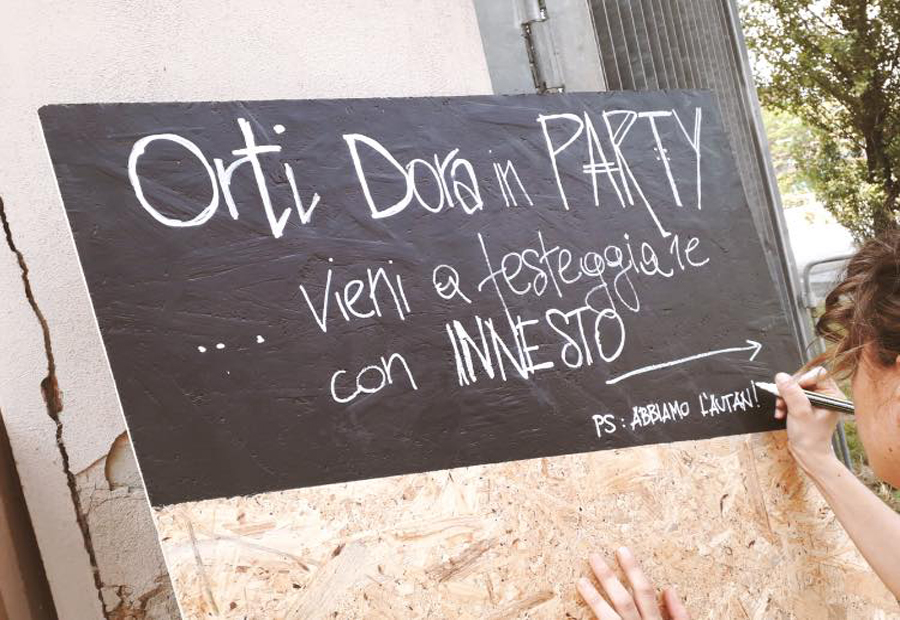 Orti Dora in PARTY
... vieni a festeggiare
con INNESTO
PS: ABBIAMO L'AUTAN!